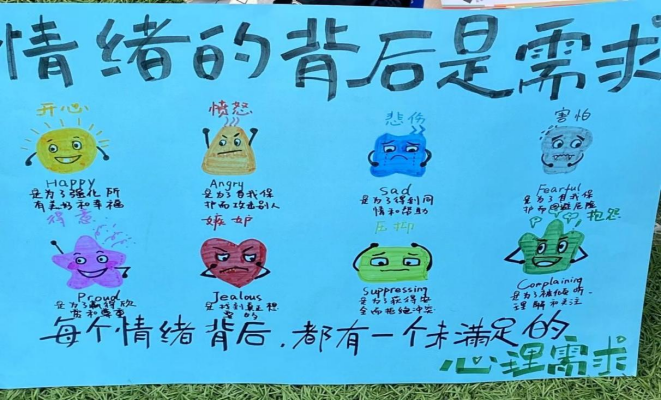 情绪的背后是需求
开心
愤怒
悲伤
害怕
Happy
Angry
Sad
Fearful
是为了强化所
有美好和幸福
是为了自我保
护而攻击别人
是为了得到同
情和帮助
是为了自我保
护而回避危险
得意
嫉妒
压抑
抱怨
Proud
Jealous
Suppressing
Complaining
是为了赢得欣
赏和尊重
是找到真正想
要的
是为了获得安
全而拒绝冲突
是为了被倾听、
理解和关注
每个情绪背后，都有一个未满足的
心理需求